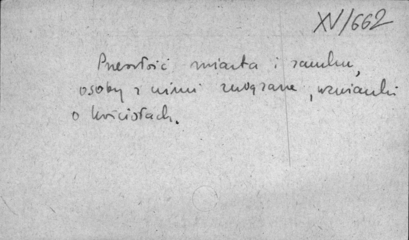 XV/662
Przeszłość miasta i zamku,
osoby z nimi związane, wzmianki
o kościołach.